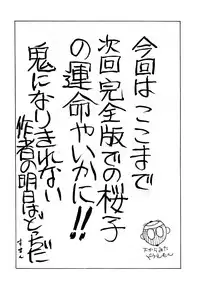 今回はここまで
次回完全版での桜子
の運命やいかに!!
鬼になりきれない
作者の明日はどっちだ